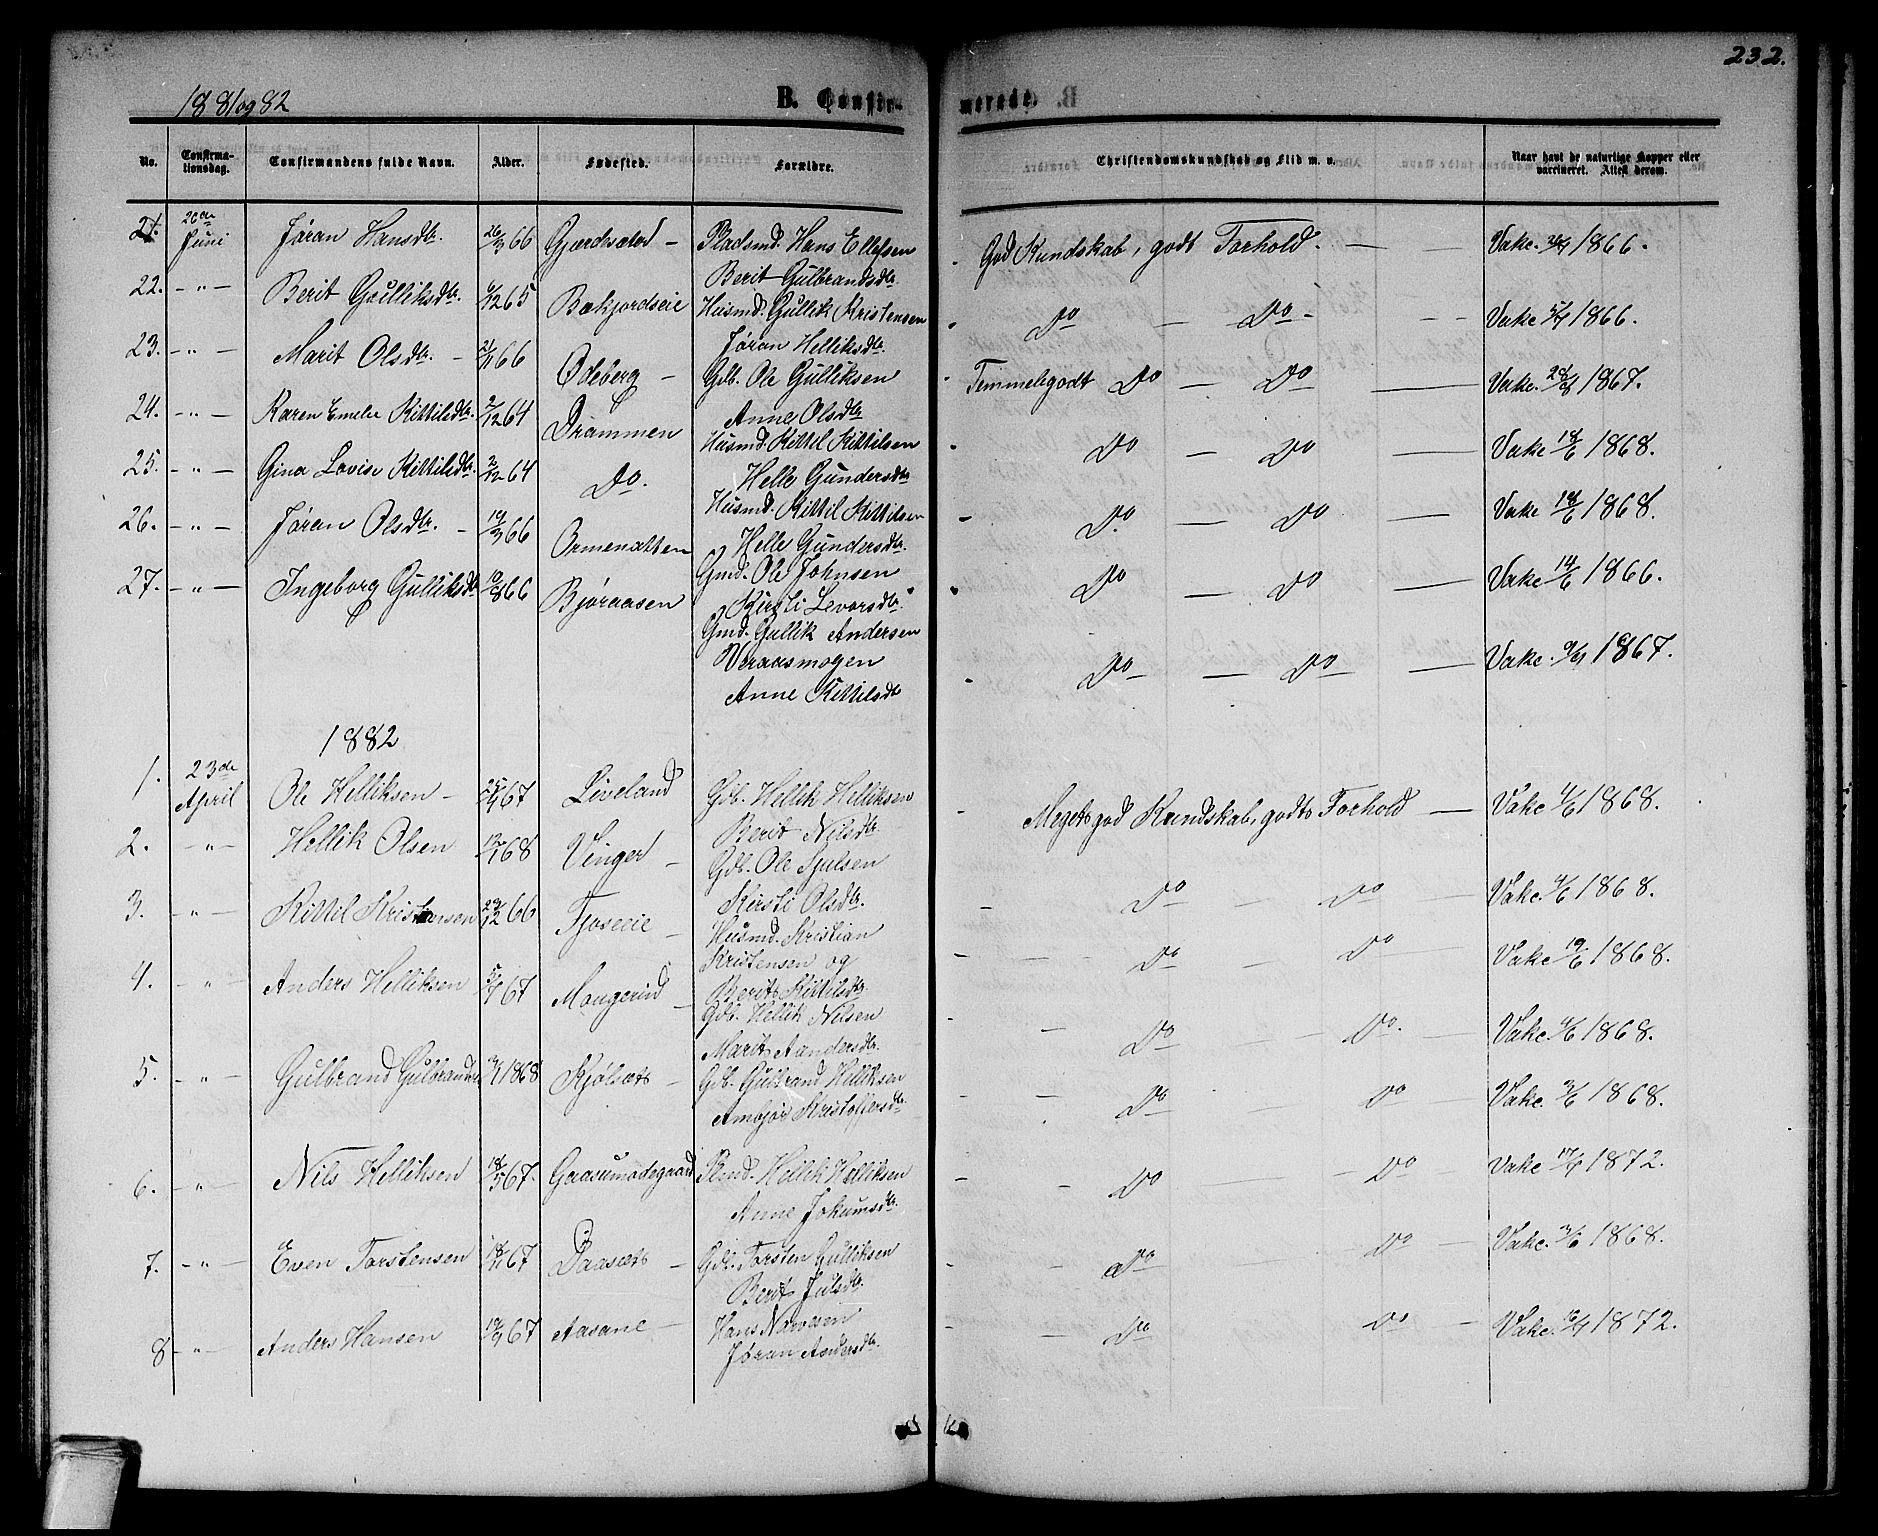 232.
1881 og 82
B. Confirmerede.
No.
Confirmationsdag.
Confirmandens fulde Navn.
Alder.
Fødested.
Forældre.
Christendomskundskab og Flid m. v.
Naar havt de naturlige Kopper eller vaccineret. Attest derom.
21. 26de Juni Jøran Hansdtr. 26/3 66 Pladsmd. Hans Ellefsen Berit Gulbrandsdtr. God Kundskab, godt Forhold. Vakc. 1866.
22. -"- Berit Gulliksdtr. 65 Bækjordseie Husmd. Gullik Kristensen Jøran Helliksdtr. Do Do Vakc 1866.
23. -"- Marit Olsdtr. 66 Ødeberg Gdb. Ole Gulliksen Anne Olsdtr Temmelegodt Do Do Vakc. 1867.
24. -"- Karen Emelie Kittilsdtr. 2/12 64 Drammen Husmd. Kittil Kittilsen Helle Gundersdtr Do Do Vakc 18/6 1868.
25. -"- Gina Lovise Kittilsdtr. 2/12 64 Do. Husmd. Kittil Kittilsen Helle Gundersdtr. Do Do Vakc 18/6 1868.
26. -"- Jøran Olsdtr. 19/3 66 Ormenatten Gmd. Ole Johnsen Kirsti Levorsdtr. Do Do Vakc 14/6 1866.
27. -"- Ingeborg Gulliksdtr 10/8 66 Bjøraasen Gmd. Gullik Andersen Veraasmogen Anne Kittilsdtr Do Do Vakc. 1867.
1882
1. 23de April Ole Helliksen 67 Liveland Gdb. Hellik Helliksen Berit Nilsdtr. Meget god Kundskab, godt Forhold Vakc 1868.
2. -"- Hellik Olsen 68 Vinger Gdb. Ole Sjulsen Kirsti Olsdtr. Do Do Vakc. 1868.
3. -"- Kittil 66 Tjoseeie Husmd. Kristian Kristensen og Berit Kittilsdtr. Do Do Vakc 19/6 1868.
4. -"- Anders Helliksen 67 Mougerud Gdb. Hellik Nilsen Marit Andersdtr. Do Do. Vakc. 1868.
5. -"- Gulbrand Gulbrandsen 1868 Kjølset Gdb. Gulbrand Helliksen Kristoffersdtr. Do Do Vakc. 1868.
6. -"- Nils Helliksen 18/5 67. Hellik Helliksen Anne Jokumsdtr. Do Do Vakc 1872.
7. -"- Even Torstensen 67 Daaset Gdb. Torsten Gulliksen Berit Julsdtr. Do Do Vakc. 1868.
8 -"- Anders Hansen 67 Aasane Hans Narvesen Jøran Andersdtr. Do Do Vakc. 1872.